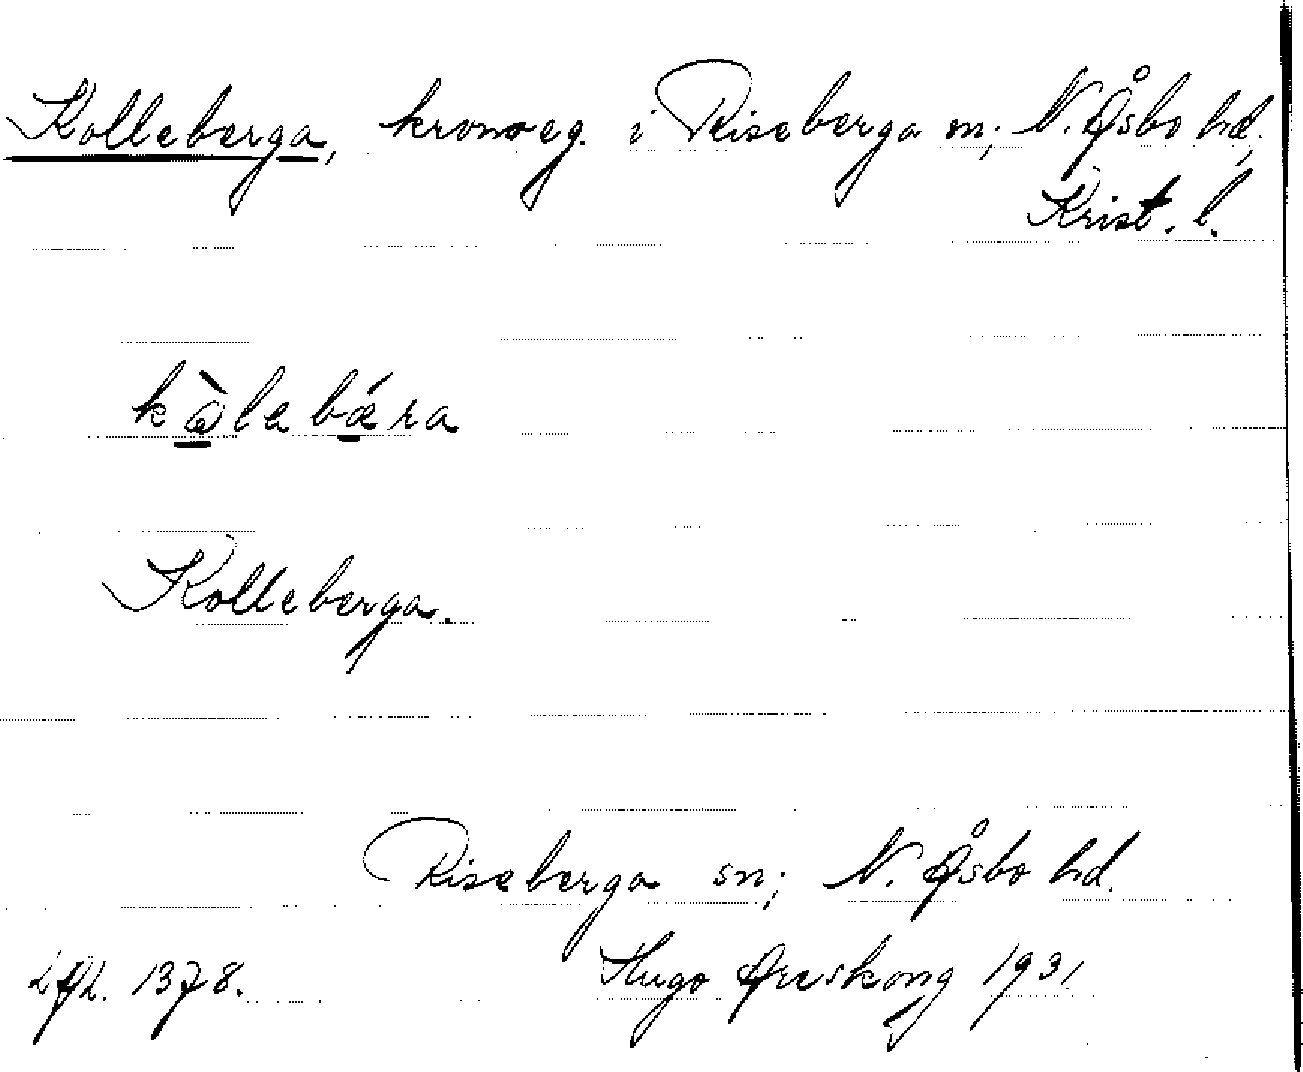 Kolleberga, kronoeg. i Riseberga sn; N. Åsbo hd,
Krist. l.
kå̀le bǽra
Kolleberga.
Riseberga sn; N. Åsbo hd.
1378. Hugo Areskoug 1931